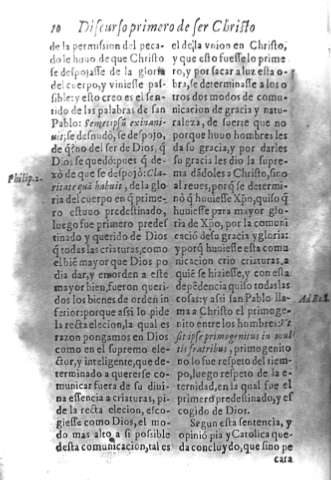 10 Discurso primero de ser Christo
de la permision del peca
do le huuo de que Christo
se despojasse de la gloria
del cuerpo, y viniesse pas
sible: y esto creo es el sen
tido de las palabras de san
Pablo: Semetipsũ exinani-
uit, se desnudò, se despojo,
de q̃? no del ser de Dios, q̃
Dios se quedò: pues q̃ de
xò de que se despojò: Cla
ritate quà habuit, de la glo
ria del cuerpo en q̃ prime
ro estauo predestinado,
luego fue primero predes
tinado y querido de Dios
q̃ todas las criaturas, como
el biẽ mayor que Dios po
dia dar, y en orden a este
mayor bien, fueron queri
dos los bienes de orden in
ferior: porque assi lo pide
la recta eleciõ, la qual es
razon pongamos en Dios
como en el supremo ele-
ctor, y inteligente, que de
terminado a quererse co
municar fuera de su diui
na essencia a criaturas, pi
de la recta elecion, esco-
giesse como Dios, el mo-
do mas alto, si possible
desta comunicaciòn, tal es
Philip. 2.
el de la vnion en Christo,
y que esto fuesse lo prime
ro, y por sacar a luz esta o-
bra, se determinasse a los o
tros dos modos de comu-
nicacion de gracia y natu-
raleza, de suerte que no
porque huuo hombres les
da su gracia, y por darles
su gracia les dio la supre-
ma dadoles a Christo, sino
al reues, porq̃ se determi-
nò q̃ huuiesse Xp̃o, quiso q̃
huuiesse para mayor glo-
ria de Xp̃o, por la comuni
caciõ desta gracia y gloria:
y porq̃ huuiesse esta comu
nicacion crio criaturas, a
quiẽ se hiziesse, y con esta
depẽdencia quiso todas las
cosas: y assi san Pablo lla-
ma a Christo el primoge-
nito entre los hombres: Vt
sit ipse primogenitus in mul
tis fratribus, primogenito
no lo fue respeto del tiem-
po, luego respeto de la e-
ternidad, en la qual fue el
primero predestinado, y es
cogido de Dios.
Segun esta sentencia, y
opinió pia y Catolica que
da concluydo, que sino pe
cara